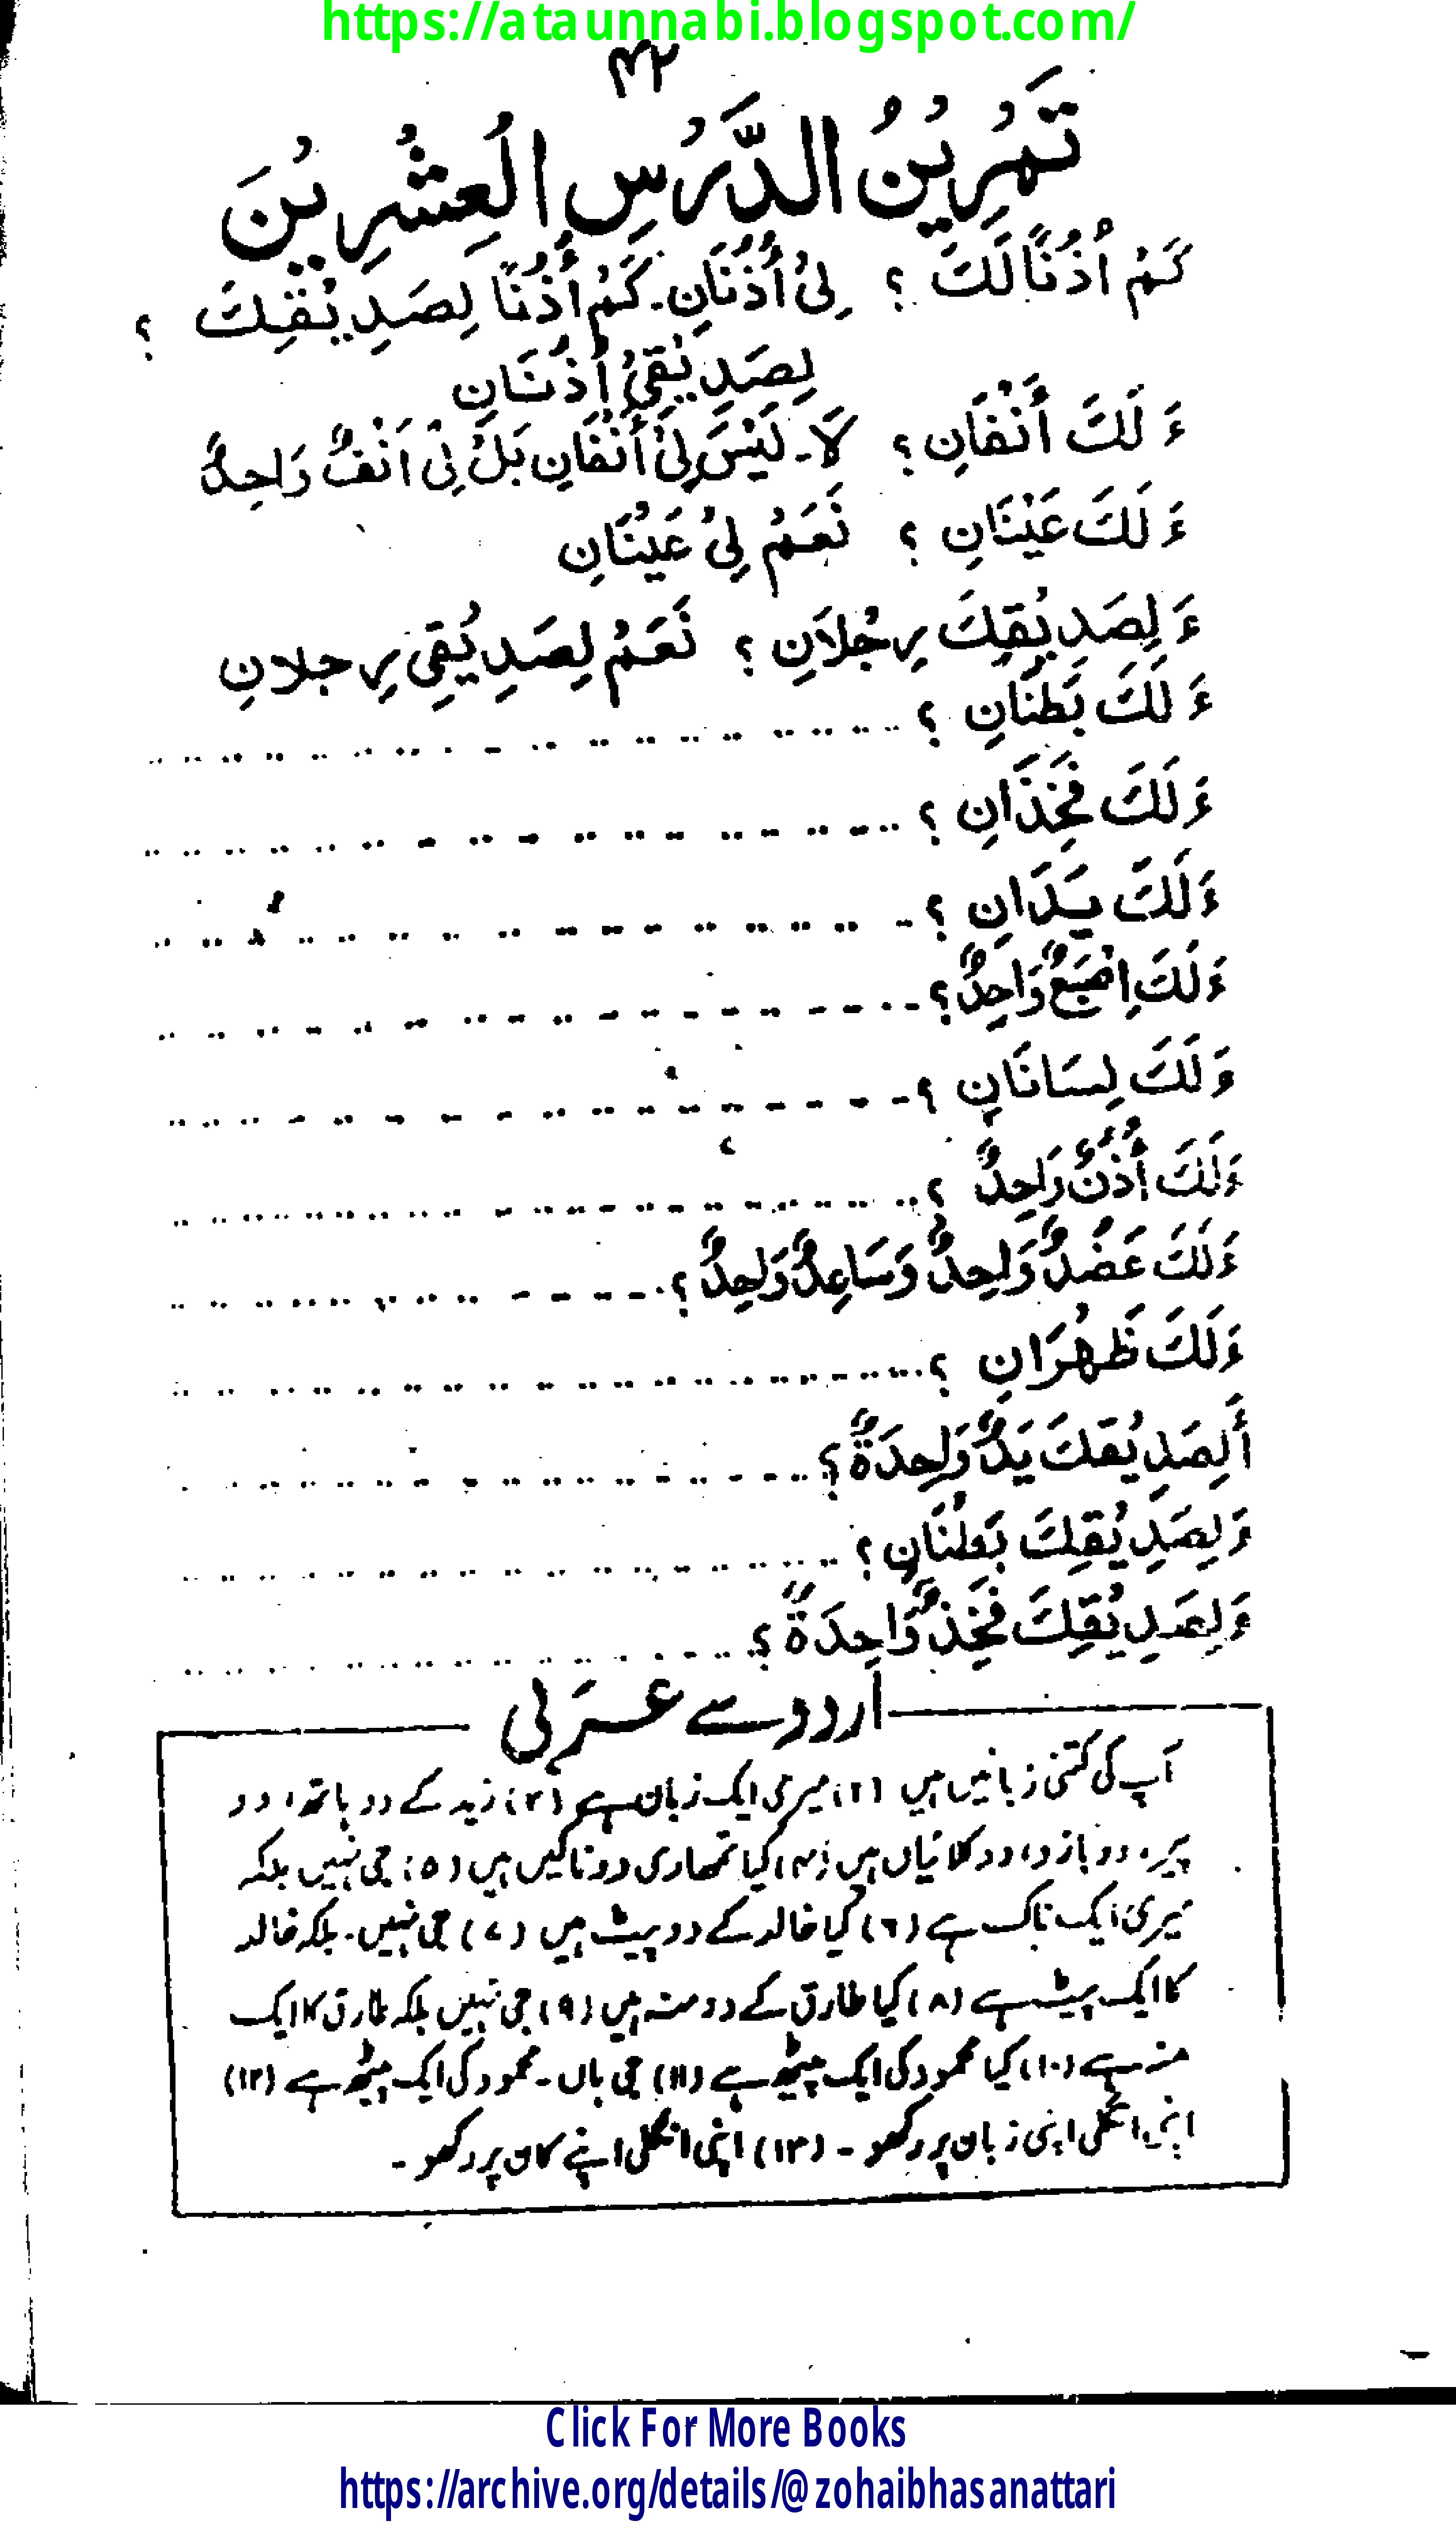 https://ataunnabi.blogspot.com/
۴۲
تَمْرِيْنُ الدَّرْسِ الْعِشْرِيْنَ
كَمْ اُذُنًا لَكَ ؟ لِيْ أُذُنَانِ۔ كَمْ أُذُنًا لِصَدِيْقِكَ ؟
لِصَدِيْقِيْ اُذُنَانِ
ءَ لَكَ أَنْفَانِ ؟ لَا۔ لَيْسَ لِيْ أَنْفَانِ بَلْ لِيْ اَنْفٌ وَاحِدٌ
ءَ لَكَ عَيْنَانِ ؟ نَعَمْ لِيْ عَيْنَانِ
ءَ لِصَدِيْقِكَ رِجْلَانِ ؟ نَعَمْ لِصَدِيْقِي رِجلانِ
ءَ لَكَ بَطْنَانِ ؟
ءَ لَكَ فَخِذَانِ ؟
ءَ لَكَ يَدَانِ ؟
ءَ لَكَ اِصْبَعٌ وَاحِدٌ ؟
ءَ لَكَ لِسَانَانِ ؟
ءَ لَكَ أُذُنٌ وَاحِدٌ ؟
ءَ لَكَ عَضُدٌ وَاحِدٌ وَسَاعِدٌ وَاحِدٌ ؟
ءَ لَكَ ظَهْرَانِ ؟
أَلِصَدِيْقِكَ يَدٌ وَاحِدَةٌ ؟
ءَ لِصَدِيْقِكَ بَطْنَانِ ؟
ءَ لِصَدِيْقِكَ فَخِذٌ وَّاحِدَةٌ ؟
اردو سے عربی
آپ کی کتنی زبانیں ہیں (۲) میری ایک زبان ہے (۳) زید کے دو ہاتھ، دو
پیر، دو بازو، دو کلائیاں ہیں (۴) کیا تمھاری دو ناکیں ہیں (۵) جی نہیں بلکہ
میری ایک ناک ہے (۶) کیا خالد کے دو پیٹ ہیں (۷) جی نہیں۔ بلکہ خالد
کا ایک پیٹ ہے (۸) کیا طارق کے دو منہ ہیں (۹) جی نہیں بلکہ طارق کا ایک
منہ ہے (۱۰) کیا محمود کی ایک پیٹھ ہے (۱۱) جی ہاں۔ محمود کی ایک پیٹھ ہے (۱۲)
اپنی انگلی اپنی زبان پر رکھو ۔ (۱۳) اپنی انگلی اپنے کان پر رکھو ۔
Click For More Books
https://archive.org/details/@zohaibhasanattari